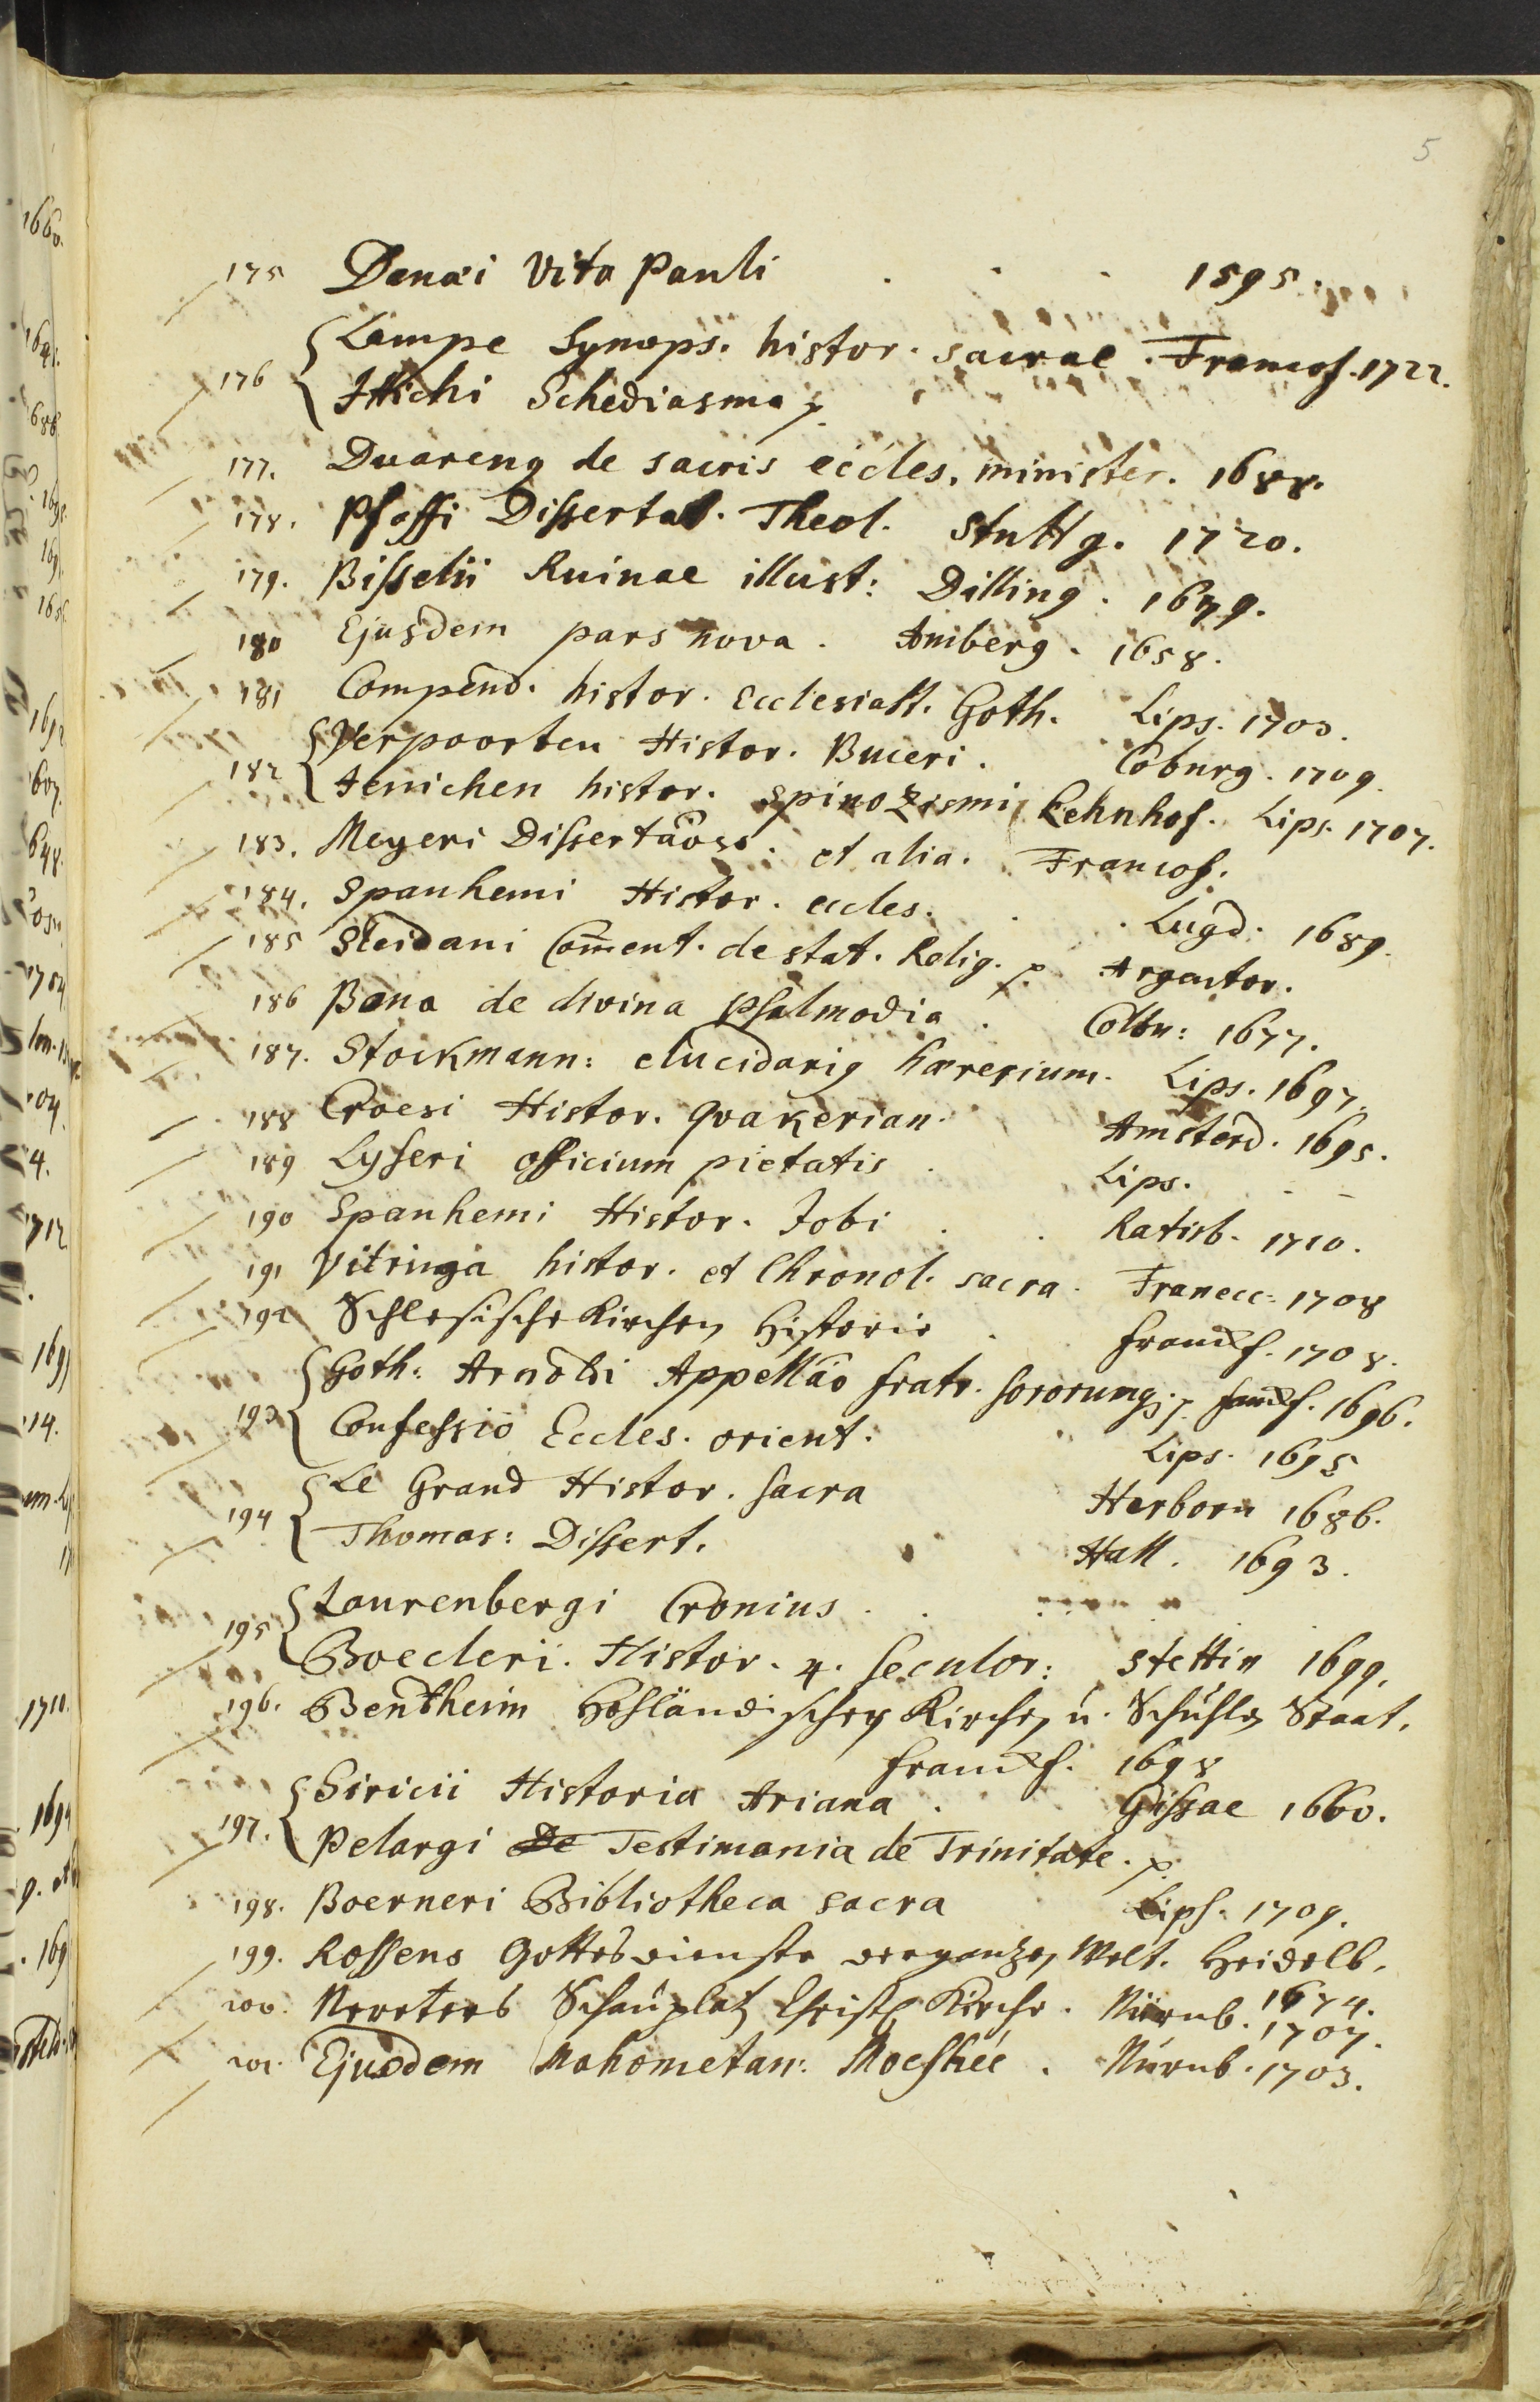 5
175 Danaei Vita Pauli . . . 1595.
176 { Lampe Synops. histor. sacrae. Francof. 1722.
Ittichi Schediasma p.
177. Duareng de sacris eccles. minister. 1688.
178. Pfaffi Dissertat. Theol. Stuttg. 1720.
179. Bisselii Ruinae illust: Dilling. 1679.
180 Ejusdem pars nova. Amberg. 1658.
181 Compend. histor. Ecclesiast. Goth. Lips. 1703.
182 { Verpoorten Histor. Buceri. Coburg. 1709.
Jenichen histor. Spinozismi Lehnhof. Lips. 1707.
183. Meyeri Dissertaoss. et alia. Francof.
184. Spanhemi Histor. eccles. . . Lugd. 1689.
185 Sleidani Com̄ent. de stat. Relig. p. Argentor.
186 Bona de divina psalmodia. Colon: 1677.
187. Stockmann: elucidarig hæresium. Lips. 1697.
188 Croesi Histor. Quakerian. Amsterd. 1695.
189 Lyseri officium pietatis . Lips. - -
190 Spanhemi Histor. Jobi . . Ratisb. 1710.
191 Vitringa histor. et Chronol. sacra. Franecc: 1708
192 Schlesische Kirchen Historie . Franckf. 1708.
193 { Goth: Arnoldi Appellao fratr. sororumq; p. Franckf. 1696.
Confessio Eccles. orient. Lips. 1695
194 { Le Grand Histor. sacra Herborn 1686.
Thomas: Dissert. Hall. 1693.
195 { Laurenbergi Cronius . .
Boecleri. Histor. 4. Seculor: Stettin 1699.
196. Bentheim Holländischer Kirchen u. Schuhlen Staat.
Franckf. 1698
197. { Siricii Historia Ariana . Gissae 1660.
Pelargi De Testimonia de Trinitate. p.
198. Boerneri Bibliotheca sacra Lips. 1709.
199. Rossens Gottesdienste der ganzen Welt. Heidelb.
1674.
200. Nereters Schauplatz Christl. Kirche. Nürnb. 1707.
201. Ejusdem Mahometan: Moeshée . Nürnb. 1703.